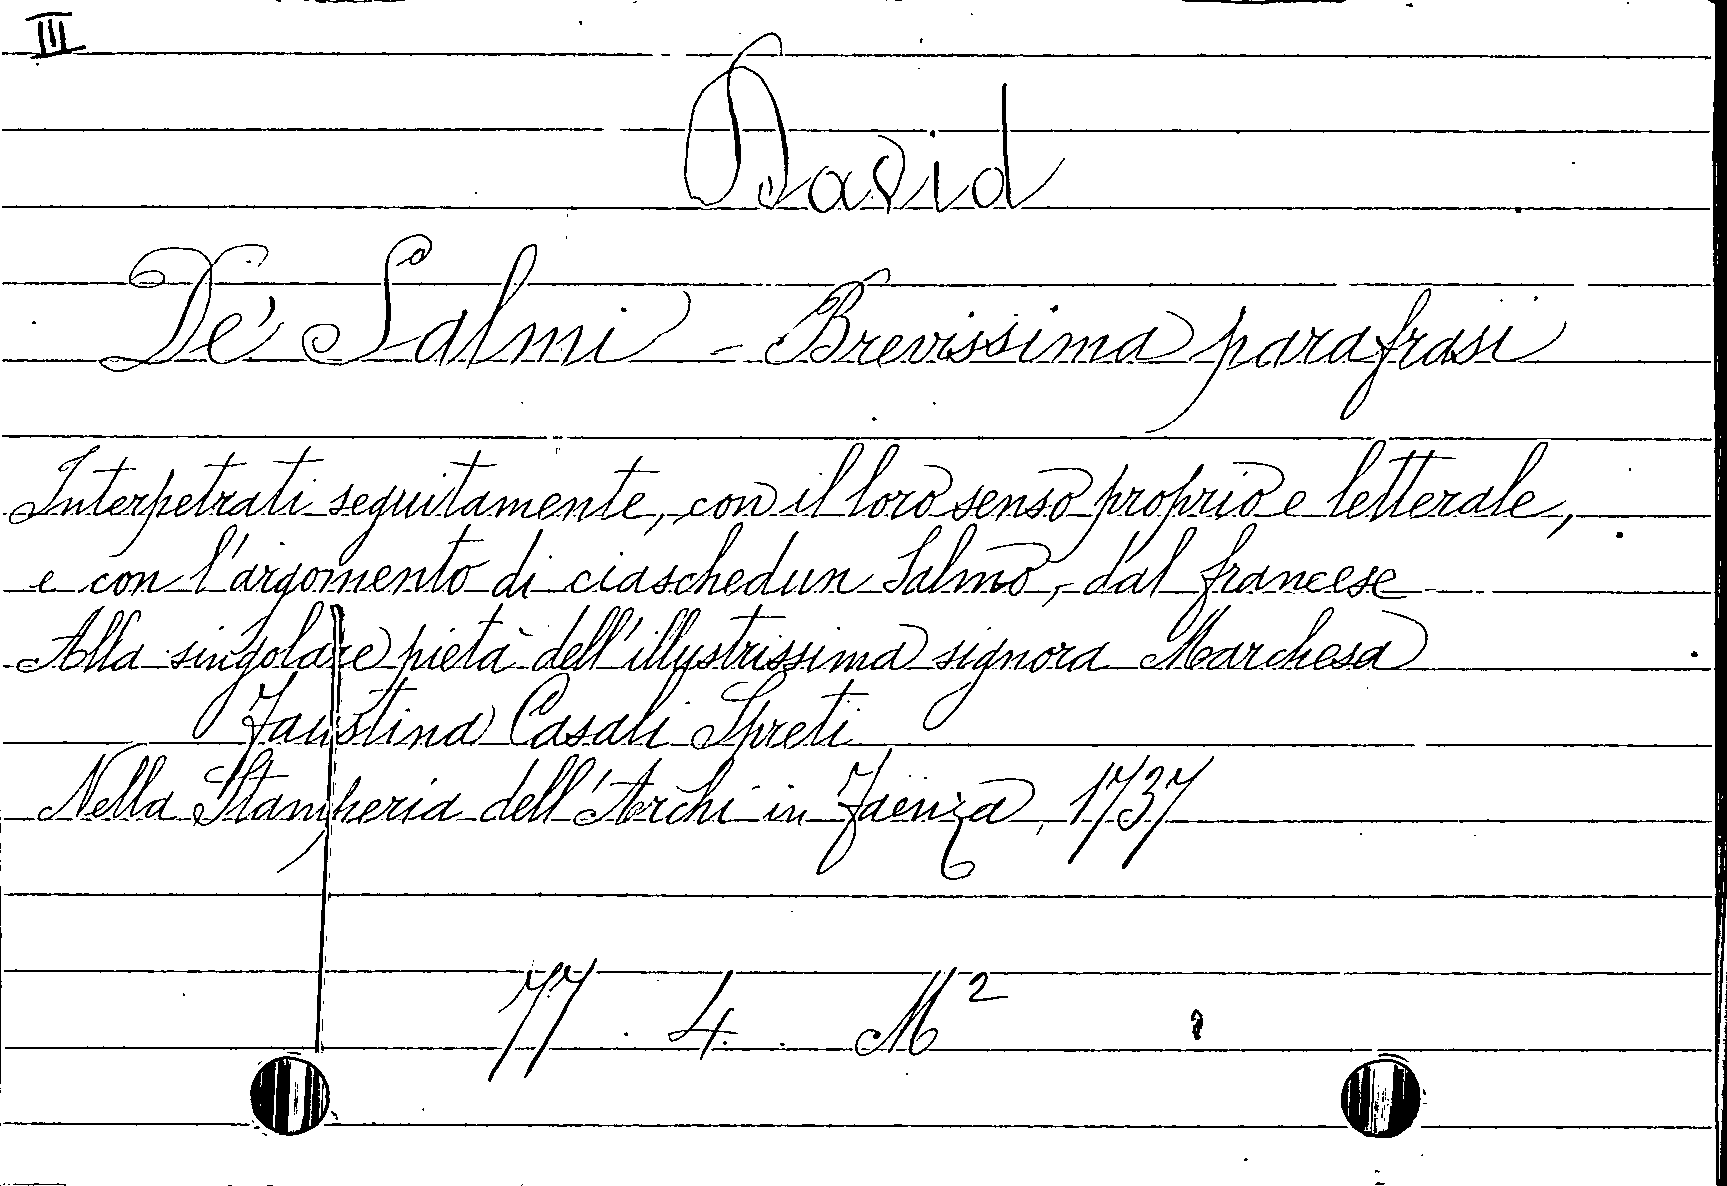 III
David
De' Salmi - Brevissima parafrasi
Interpetrati seguitamente, con il loro senso proprio e letterale,
e con l'argomento di ciaschedun Salmo, dal francese
Alla singolare pietà dell'illustrissima signora Marchesa
Faustina Casali Spreti
Nella Stamperia dell'Archi in Faenza, 1737
77. 4. M²